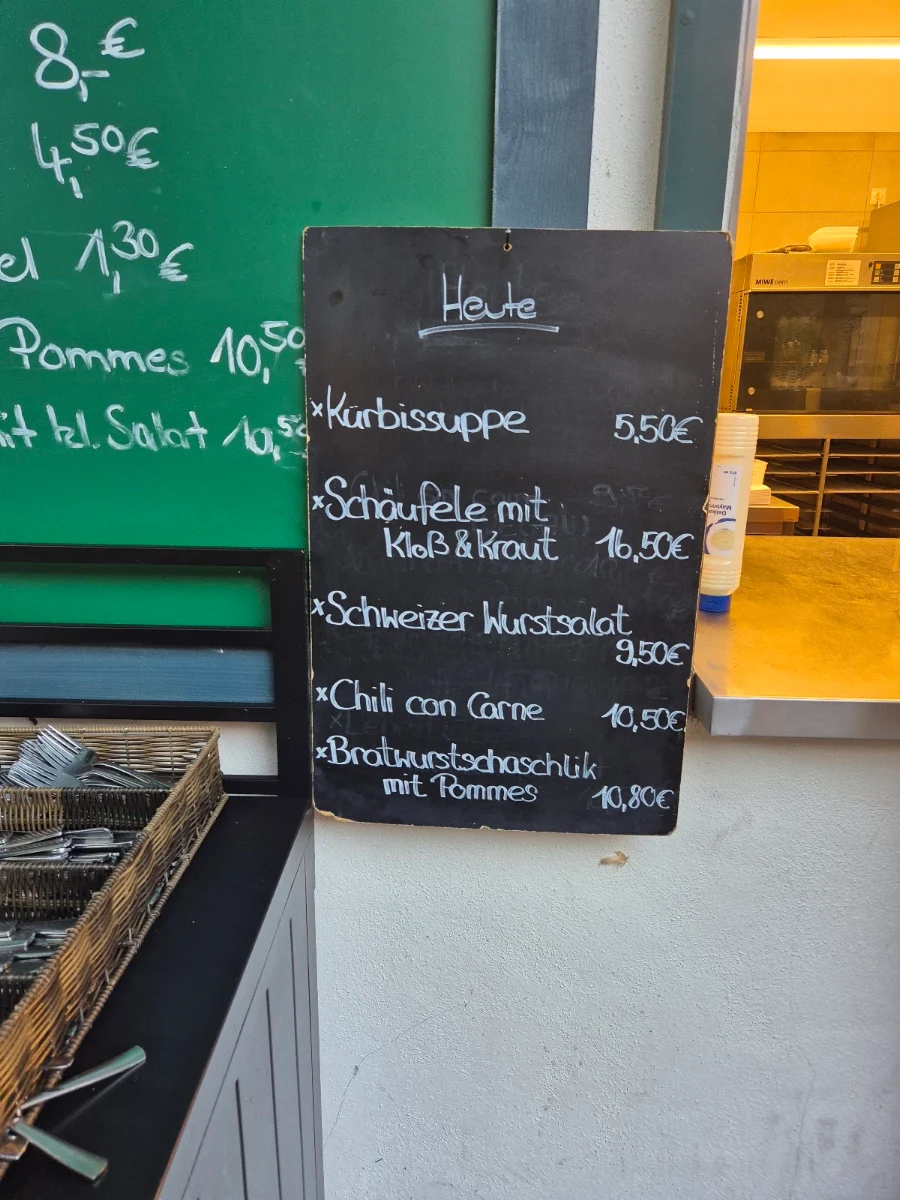 8,- €
4,50 €
el 1,30 €
Pommes 10,50
it kl. Salat 10,5
Heute
x Kürbissuppe 5,50€
x Schäufele mit
Kloß & Kraut 16,50€
x Schweizer Wurstsalat
9,50€
x Chili con Carne 10,50€
x Bratwurstschaschlik
mit Pommes 10,80€
MIWE
Mayonn